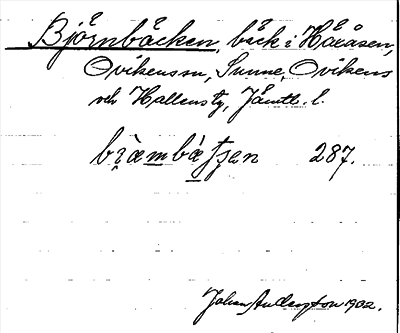 Björnbäcken, bäck i Håråsen,
Ovikenssn, Sunne, Ovikens
och Hallens ty, Jämtl. l.
bi̯æ̀mbæ̀tʃen 287.
Johan Anderzon 1902.